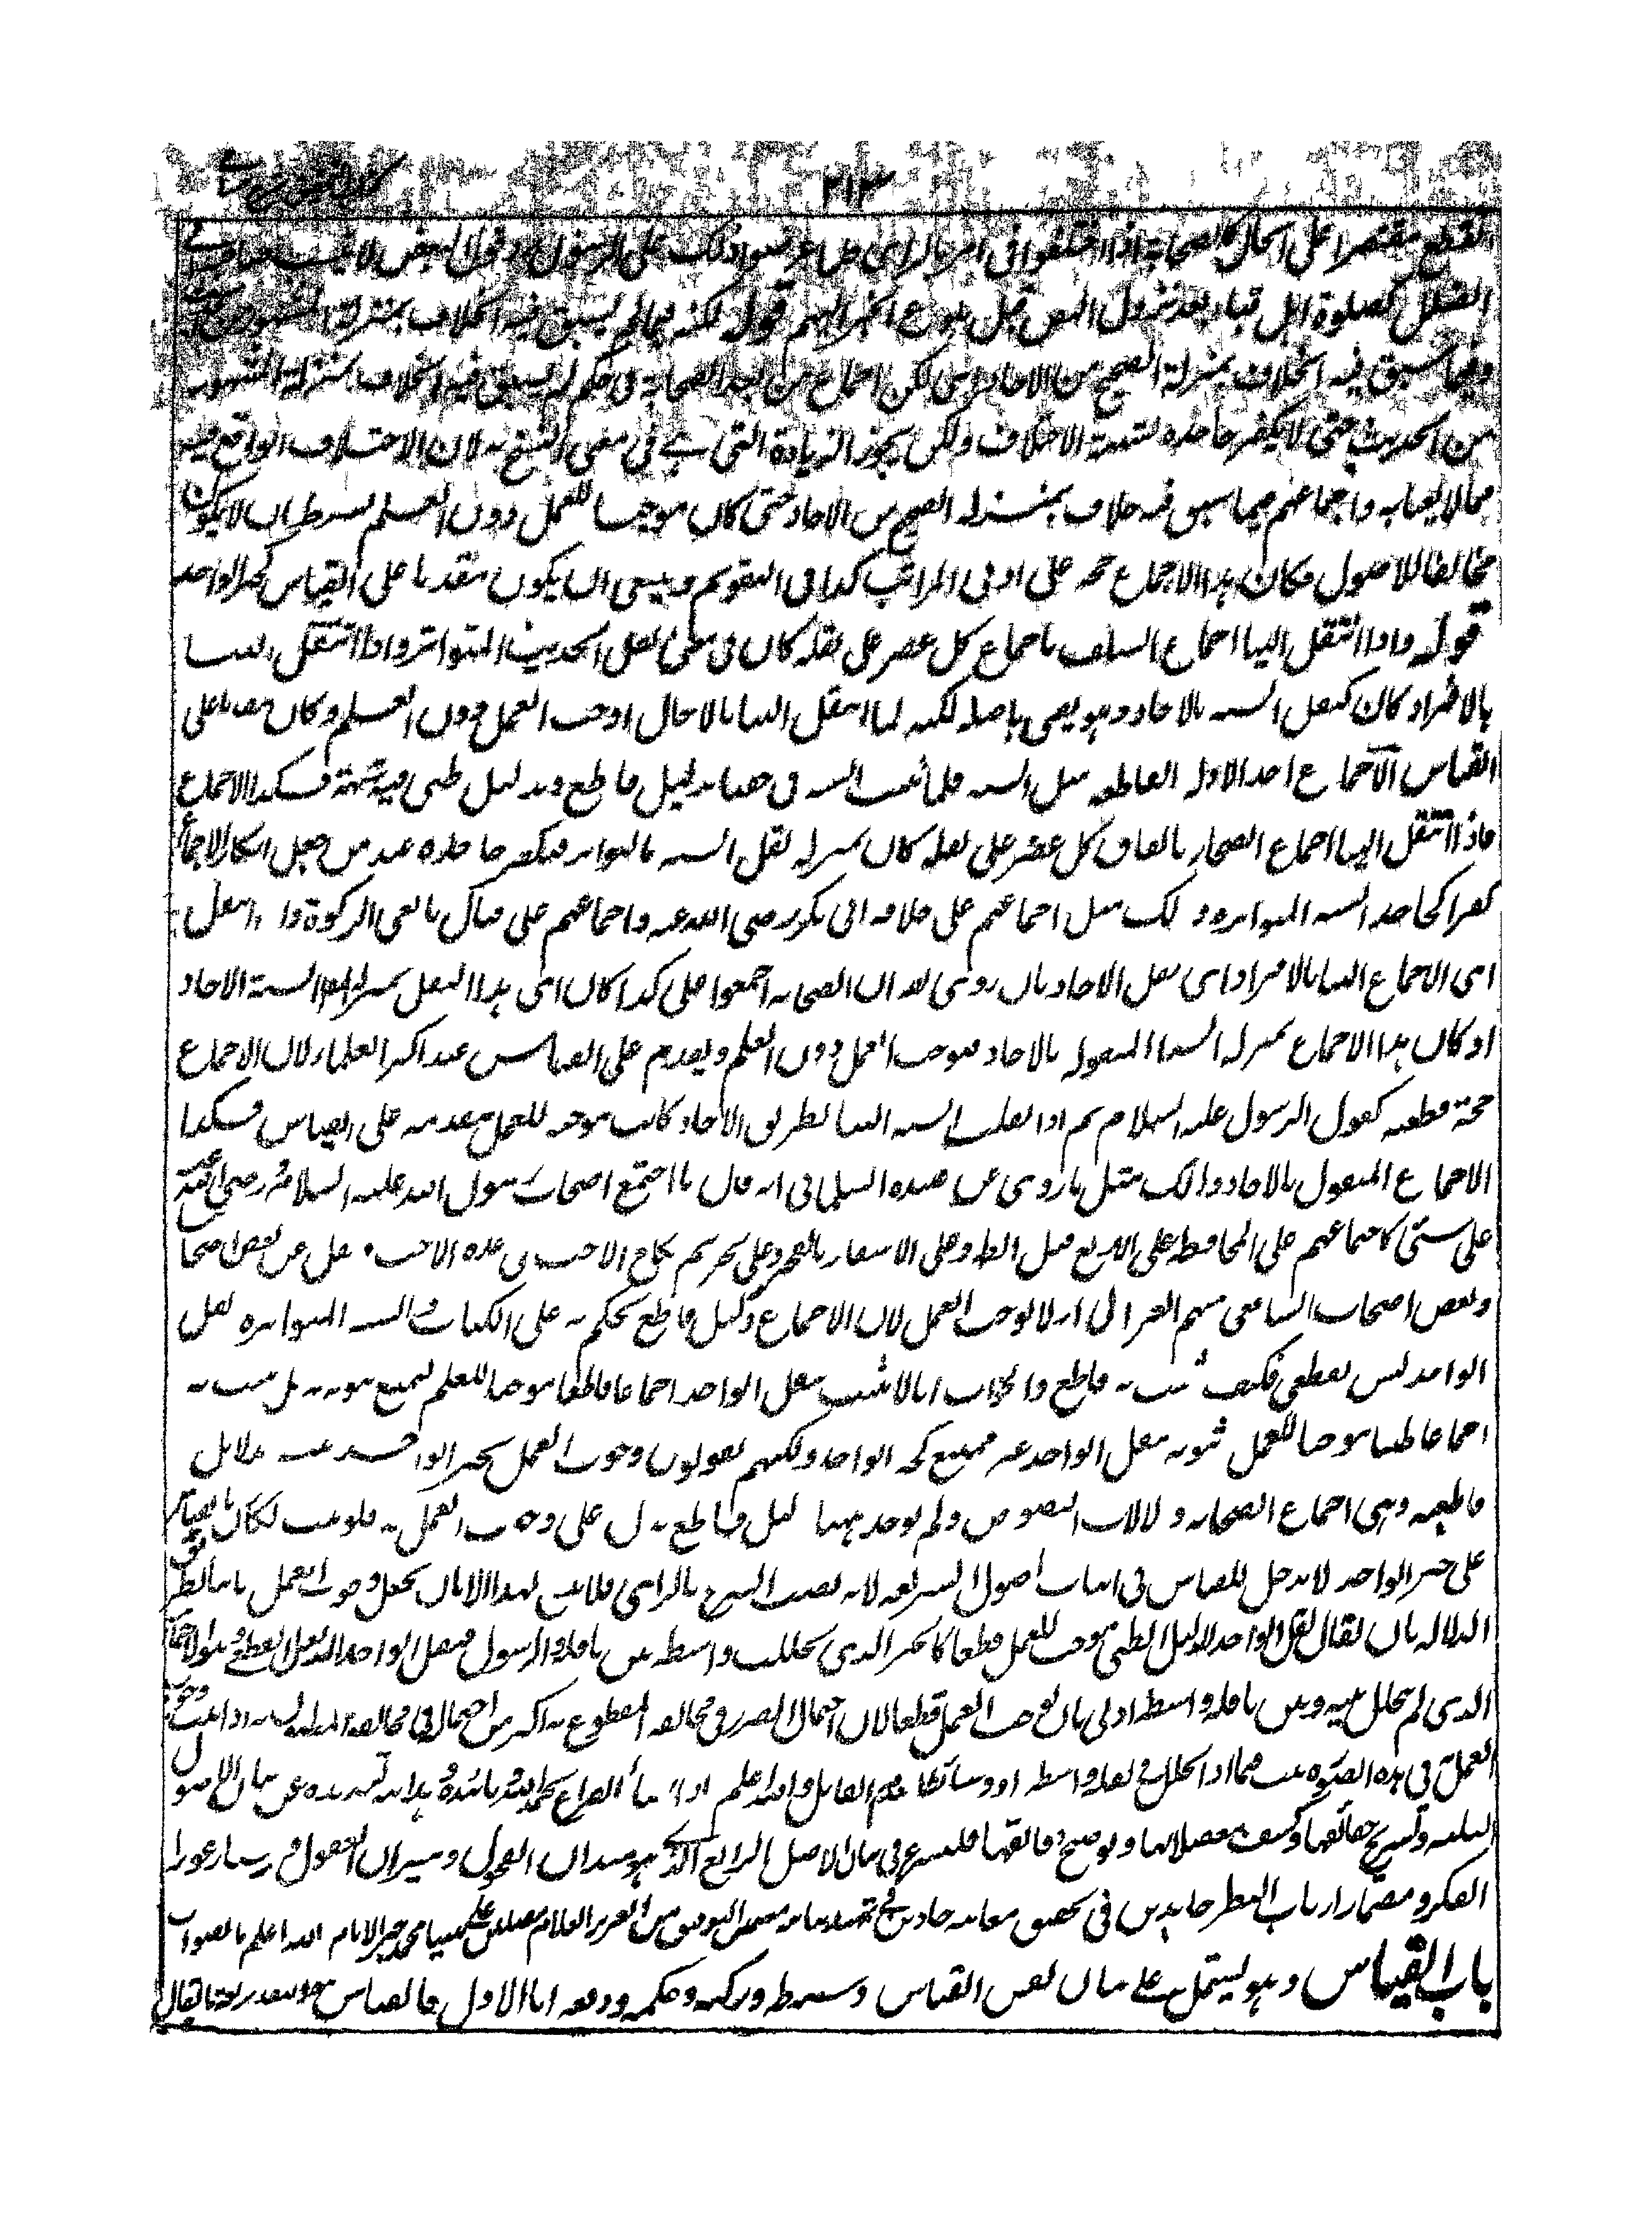 ٢١٣
القطع مقتصرا على الحال كالصحابة اذا اختلفوا فى امر بالراى فلما عرضوا ذلك على الرسول
الضلال كصلوة اهل قباء بعد نزول النص قبل بلوغ الخبر اليهم قوله لكنه فيما لم يسبق فيه الخلاف بمنزلة المشهور
وفيما سبق فيه الخلاف بمنزلة الصحيح من الاحاد اى لكن اجماع من بعد الصحابة فى حكم لم يسبق فيه الخلاف بمنزلة المشهور
من الحديث حتى لا يكفر جاحده لشبهة الاختلاف ولكن يجوز الزيادة التى هى فى معنى النسخ به لان الاختلاف الواقع فيه
مما لا يعبا به واجماعهم فيما سبق فيه خلاف بمنزلة الصحيح من الاحاد حتى كان موجبا للعمل دون العلم بشرط ان لا يكون
مخالفا للاصول فكان هذا الاجماع حجة على ادنى المراتب كذا فى التقويم وينبغى ان يكون مقدما على القياس كخبر الواحد
قوله واذا انتقل الينا اجماع السلف باجماع كل عصر على نقله كان فى معنى نقل الحديث المتواتر واذا انتقل الينا
بالافراد كان كنقل السنة بالاحاد وهو يقين باصله لكنه لما انتقل الينا بالاحاد اوجب العمل دون العلم وكان مقدما على
القياس الاجماع احد الادلة القاطعة مثل السنة فلما ثبت السنة فى حقنا بدليل قاطع وبدليل ظنى فيه شبهة فكذا الاجماع
فاذا انتقل الينا اجماع الصحابة باتفاق كل عصر على نقله كان بمنزلة نقل السنة بالتواتر فيكفر جاحده عند من جعل انكار الاجماع
كفرا كجاحد السنة المتواترة وذلك مثل اجماعهم على خلافة ابى بكر رضى الله عنه واجماعهم على قتال مانعى الزكوة واذا انتقل
اى الاجماع الينا بالافراد اى بنقل الاحاد بان روى ثقة ان الصحابة اجمعوا على كذا كان اى هذا النقل بمنزلة نقل السنة بالاحاد
او كان هذا الاجماع بمنزلة السنة المنقولة بالاحاد فيوجب العمل دون العلم ويقدم على القياس عند اكثر العلماء لان الاجماع
حجة قطعية كقول الرسول عليه السلام ثم اذا نقلت السنة الينا بطريق الاحاد كانت موجبة للعمل مقدمة على القياس فكذا
الاجماع المنقول بالاحاد وذلك مثل ما روى عن عبيدة السلمانى انه قال ما اجتمع اصحاب رسول الله عليه السلام ورضى الله عنهم
على شئ كاجتماعهم على المحافظة على الاربع قبل الظهر وعلى الاسفار بالفجر وعلى تحريم نكاح الاخت فى عدة الاخت ونقل عن بعض اصحابنا
وبعض اصحاب الشافعى منهم الغزالى انه لا يوجب العمل لان الاجماع دليل قاطع يحكم به على الكتاب والسنة المتواترة ونقل
الواحد ليس بقطعى فكيف يثبت به قاطع والجواب انا لا نثبت بنقل الواحد اجماعا قاطعا موجبا للعلم ليمتنع ثبوته به بل يثبت به
اجماعا ظنيا موجبا للعمل وثبوته بنقل الواحد غير ممتنع كخبر الواحد ولكنهم يقولون وجوب العمل بخبر الواحد ثبت بدلائل
قاطعة وهى اجماع الصحابة ودلالات النصوص ولم يوجد ههنا دليل قاطع يدل على وجوب العمل به فلو ثبت لكان بالقياس
على خبر الواحد ولا مدخل للقياس فى اثبات اصول الشريعة لانه نصب الشرع بالراى فلا يثبت بهذا الا بان يجعل وجوب العمل ثابتا بطريق
الدلالة بان يقال نقل الواحد للدليل الظنى موجب للعمل قطعا كالخبر الذى تخللت واسطة بين ناقله والرسول فنقل الواحد للدليل القطعى وهو الاجماع
الذى لم يتخلل بينه وبين ناقله واسطة اولى بان يوجب العمل قطعا لان احتمال الضرر فى مخالفة المقطوع به اكثر من احتماله فى مخالفة المظنون به واذا ثبت وجوب
العمل فى هذه الصورة ثبت فيما اذا تخلل فى نقله واسطة او وسائط لعدم القائل بالفصل والله اعلم
الثلثة وتشريح حقائقها وكشف معضلاتها وتوضيح دقائقها فلنشرع فى بيان الاصل الرابع الذى هو ميدان الفحول وميزان العقول
الفكر ومضمار ارباب النظر جاهدين فى تحقيق معانيه جادين فى تمهيد مبانيه
باب القياس وهو يشتمل على بيان نفس القياس وشرطه وركنه وحكمه ودفعه اما الاول فالقياس هو التقدير لغة يقال